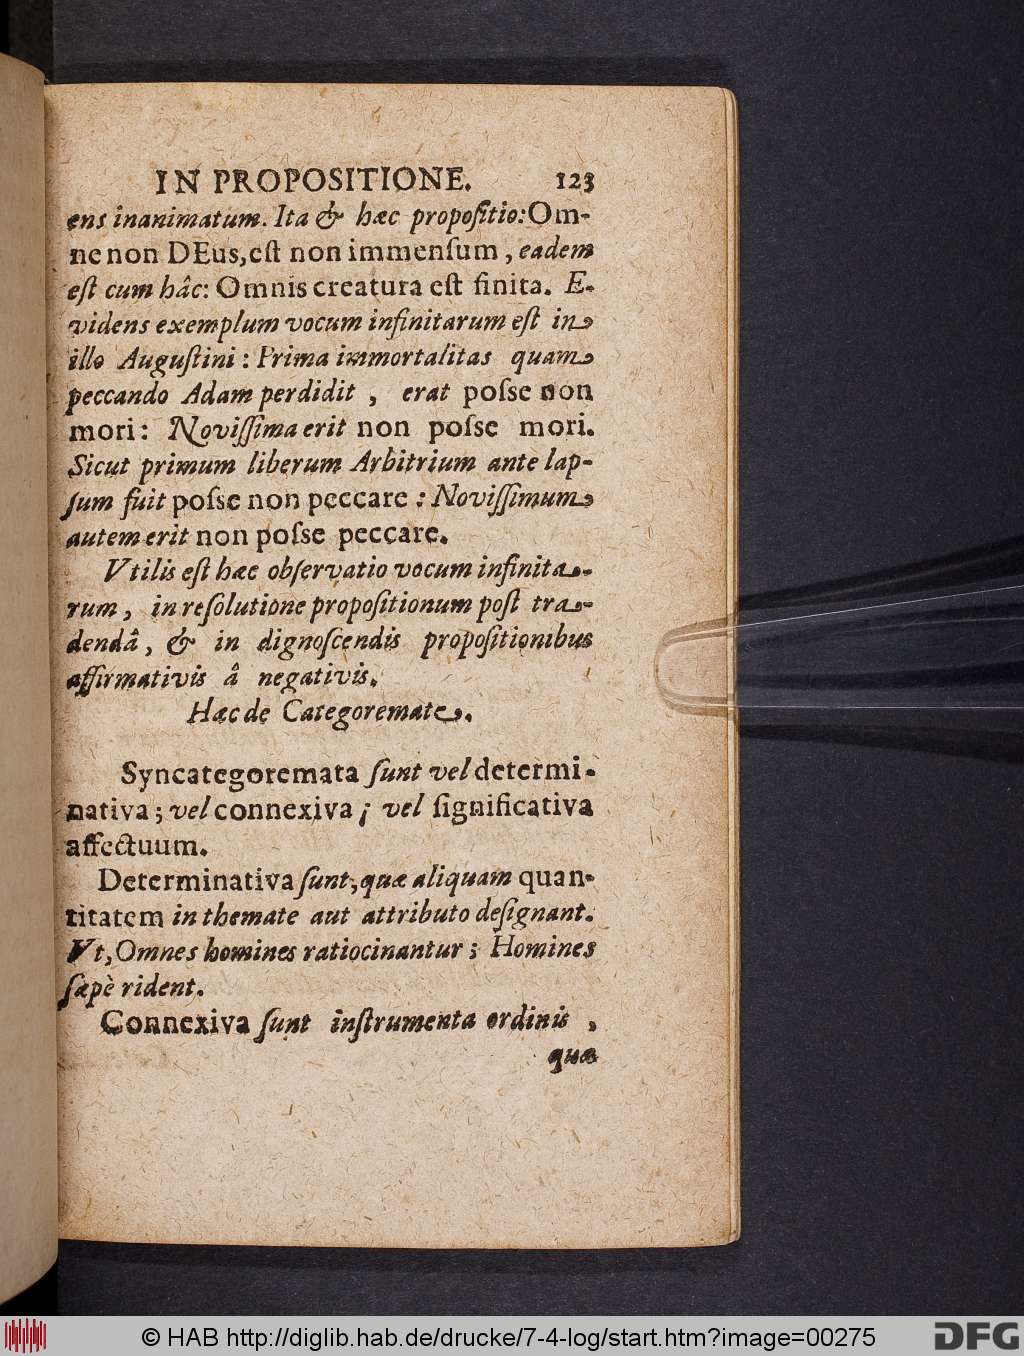 IN PROPOSITIONE. 123
ens inanimatum. Ita & hæc propoſitio: Om-
ne non DEus, eſt non immenſum, eadem
eſt cum hâc: Omnis creatura eſt finita. E-
videns exemplum vocum infinitarum eſt in
illo Auguſtini: Prima immortalitas quam
peccando Adam perdidit, erat poſse non
mori: Noviſſima erit non poſse mori.
Sicut primum liberum Arbitrium ante lap-
ſum fuit poſse non peccare: Noviſſimum
autem erit non poſse peccare.
Vtilis eſt hæc obſervatio vocum infinita-
rum, in reſolutione propoſitionum poſt tra-
dendâ, & in dignoſcendis propoſitionibus
affirmativis â negativis.
Hæc de Categoremate.
Syncategoremata ſunt vel determi-
nativa; vel connexiva; vel ſignificativa
affectuum.
Determinativa ſunt, quæ aliquam quan-
titatem in themate aut attributo deſignant.
Vt, Omnes homines ratiocinantur; Homines
ſæpè rident.
Connexiva ſunt inſtrumenta ordinis,
quæ
© HAB http://diglib.hab.de/drucke/7-4-log/start.htm?image=00275
DFG